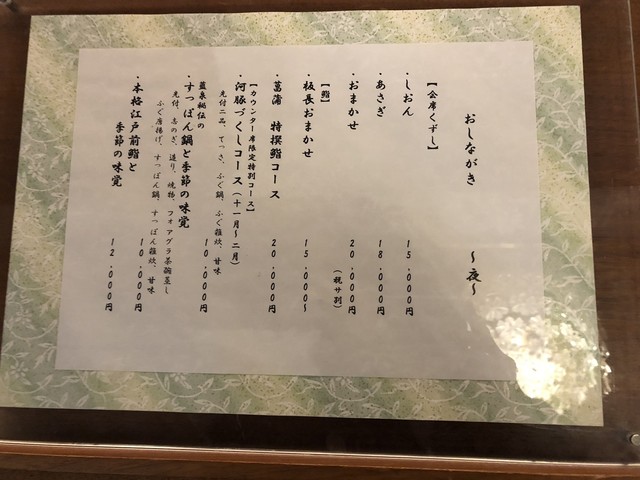 おしながき　～夜～
【会席くずし】
・しおん　15,000円
・あさぎ　18,000円
・おまかせ　20,000円
（税サ別）
【鮨】
・板長おまかせ　15,000～
・菖蒲　特撰鮨コース　20,000円
【カウンター席限定特別コース】
・河豚づくしコース（十一月～二月）
先付二品、てっさ、ふぐ鍋、ふぐ雑炊、甘味
10,000円
藍泉秘伝の
・すっぽん鍋と季節の味覚
先付、志のぎ、造り、焼物、フォアグラ茶碗蒸し
ふぐ唐揚げ、すっぽん鍋、すっぽん雑炊、甘味
10,000円
・本格江戸前鮨と
季節の味覚　12,000円